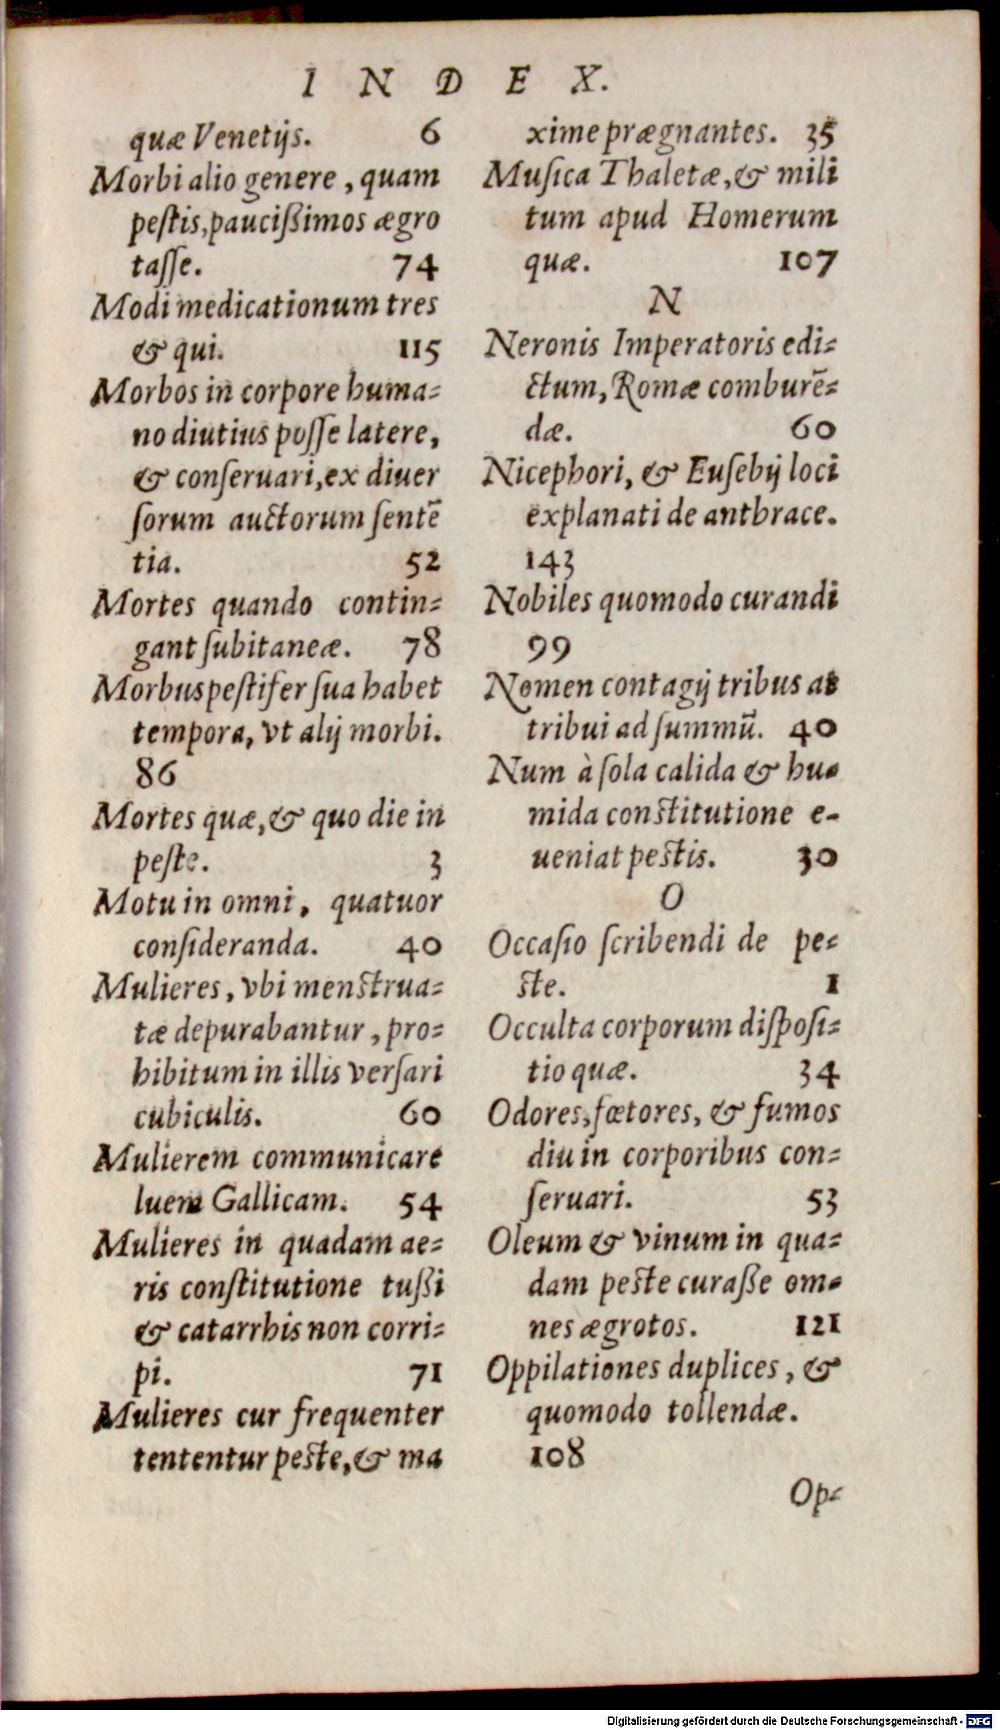 INDEX.
quæ Venetijs. 6
Morbi alio genere, quam
peſtis, pauciſſimos ægro
taſſe. 74
Modi medicationum tres
& qui. 115
Morbos in corpore huma-
no diutius poſſe latere,
& conſeruari, ex diuer
ſorum auctorum ſentē
tia. 52
Mortes quando contin-
gant ſubitaneæ. 78
Morbus peſtifer ſua habet
tempora, vt alij morbi.
86
Mortes quæ, & quo die in
peſte. 3
Motu in omni, quatuor
conſideranda. 40
Mulieres, vbi menſtrua-
tæ depurabantur, pro-
hibitum in illis verſari
cubiculis. 60
Mulierem communicare
luem Gallicam. 54
Mulieres in quadam ae-
ris conſtitutione tußi
& catarrhis non corri-
pi. 71
Mulieres cur frequenter
tententur peſte, & ma
xime prægnantes. 35
Muſica Thaletæ, & mili
tum apud Homerum
quæ. 107
N
Neronis Imperatoris edi-
ctum, Romæ comburē-
dæ. 60
Nicephori, & Euſebij loci
explanati de anthrace.
143
Nobiles quomodo curandi
99
Nomen contagij tribus at
tribui ad ſummū. 40
Num à ſola calida & hu-
mida conſtitutione e-
ueniat peſtis. 30
O
Occaſio ſcribendi de pe-
ſte. 1
Occulta corporum diſpoſi-
tio quæ. 34
Odores, fœtores, & fumos
diu in corporibus con-
ſeruari. 53
Oleum & vinum in qua-
dam peſte curaße om-
nes ægrotos. 121
Oppilationes duplices, &
quomodo tollendæ.
108
Op-
Digitalisierung gefördert durch die Deutsche Forschungsgemeinschaft - DFG